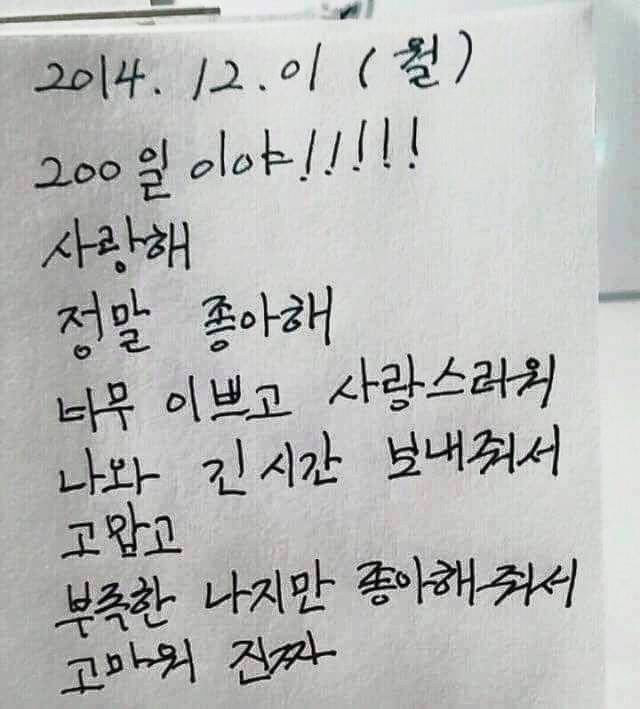 2014. 12. 01 (월)
200일 이야!!!!!
사랑해
정말 좋아해
너무 이쁘고 사랑스러워
나와 긴 시간 보내줘서
고맙고
부족한 나지만 좋아해줘서
고마워 진짜